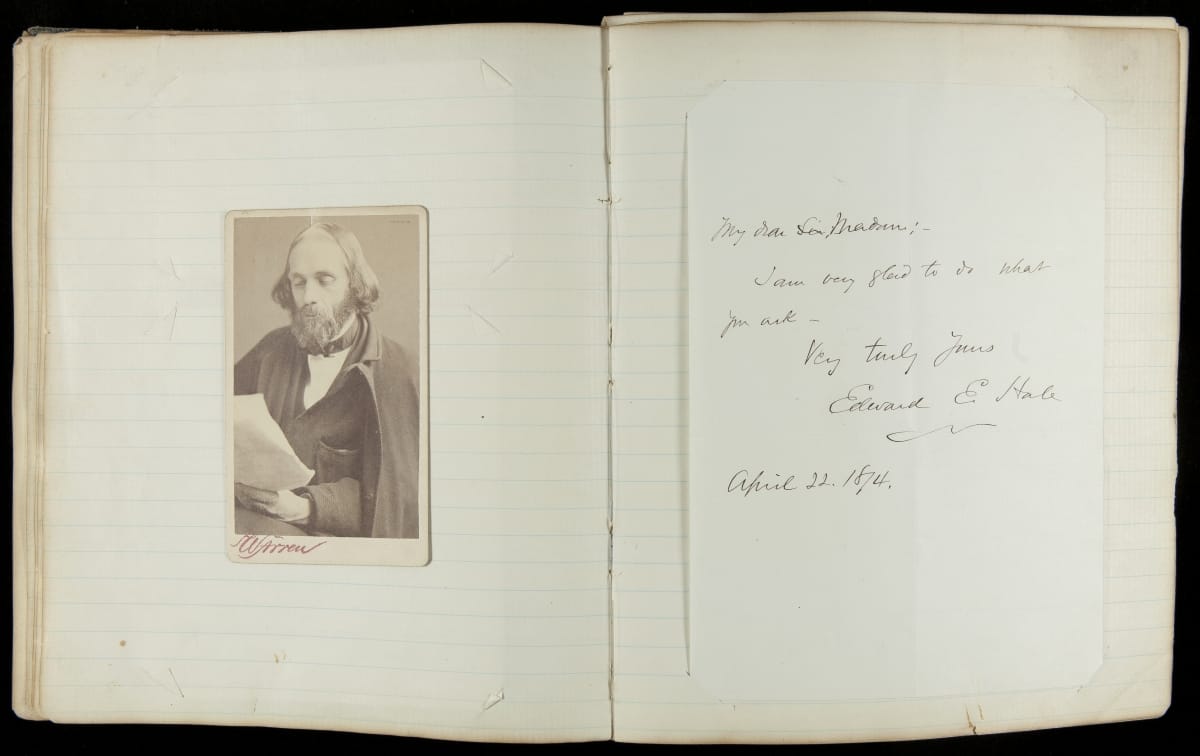 Warren
My dear Sir, Madam;-
I am very glad to do what
you ask -
Very truly Yours
Edward E. Hale
April 22. 1874.